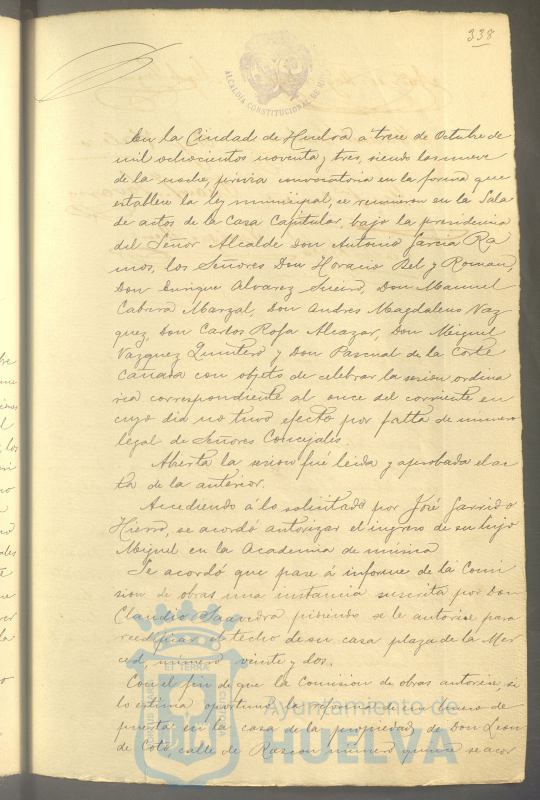 338
ALCALDIA CONSTITUCIONAL DE
En la Ciudad de Huelva a trece de Octubre de
mil ochocientos noventa y tres, siendo las nueve
de la noche, previa convocatoria en la forma que
establece la ley municipal, se reunieron en la Sala
de actos de la Casa Capitular, bajo la presidencia
del Señor Alcalde Don Antonio Garcia Ra
mos, los Señores Don Horacio Bel y Roman,
Don Enrique Alvarez Sueiro, Don Manuel
Cabrera Marzal, Don Andres Magdaleno Vaz
quez, Don Carlos Rofa Alcazar, Don Miguel
Vazquez Quintero y Don Pascual de la Corte
Cañada con objeto de celebrar la sesion ordina
ria correspondiente al once del corriente en
cuyo dia no tuvo efecto por falta de número
legal de Señores Concejales.
Abierta la sesion fué leida y aprobada el ac
ta de la anterior.
Accediendo á lo solicitado por José Garrido
Hierro, se acordó autorizar el ingreso de su hijo
Miguel en la Academia de música
Se acordó que pase á informe de la Comi
sion de obras una instancia suscrita por Don
Claudio Saavedra pidiendo se le autorise para
reedificar el techo de su casa plaza de la Mer
ced, número veinte y dos.
Con el fin de que la Comision de obras autorise, si
lo estima oportuno, la reforma de un hueco de
puerta en la casa de la propiedad de Don Leon
de Coto, calle de Rascon número quince se acor
Ayuntamiento de
HUELVA